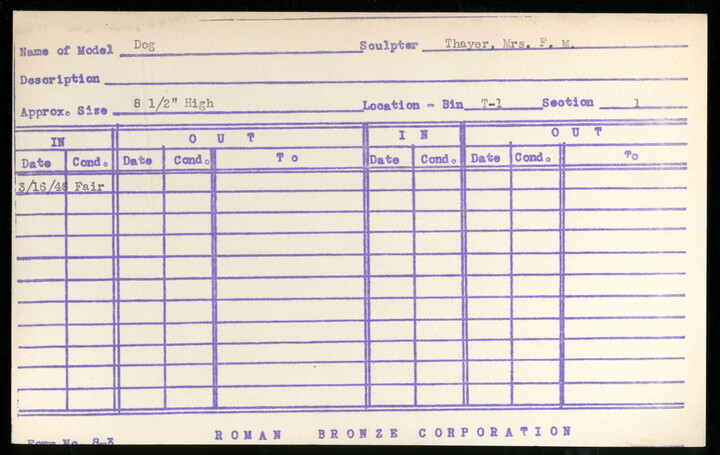 Name of Model Dog Sculpter Thayer, Mrs. F. M.
Description
Approx. Size 8 1/2" High Location - Bin T-1 Section 1
IN OUT IN OUT
Date Cond. Date Cond. To Date Cond. Date Cond. To
3/16/46 Fair
Form No. 8-3 ROMAN BRONZE CORPORATION